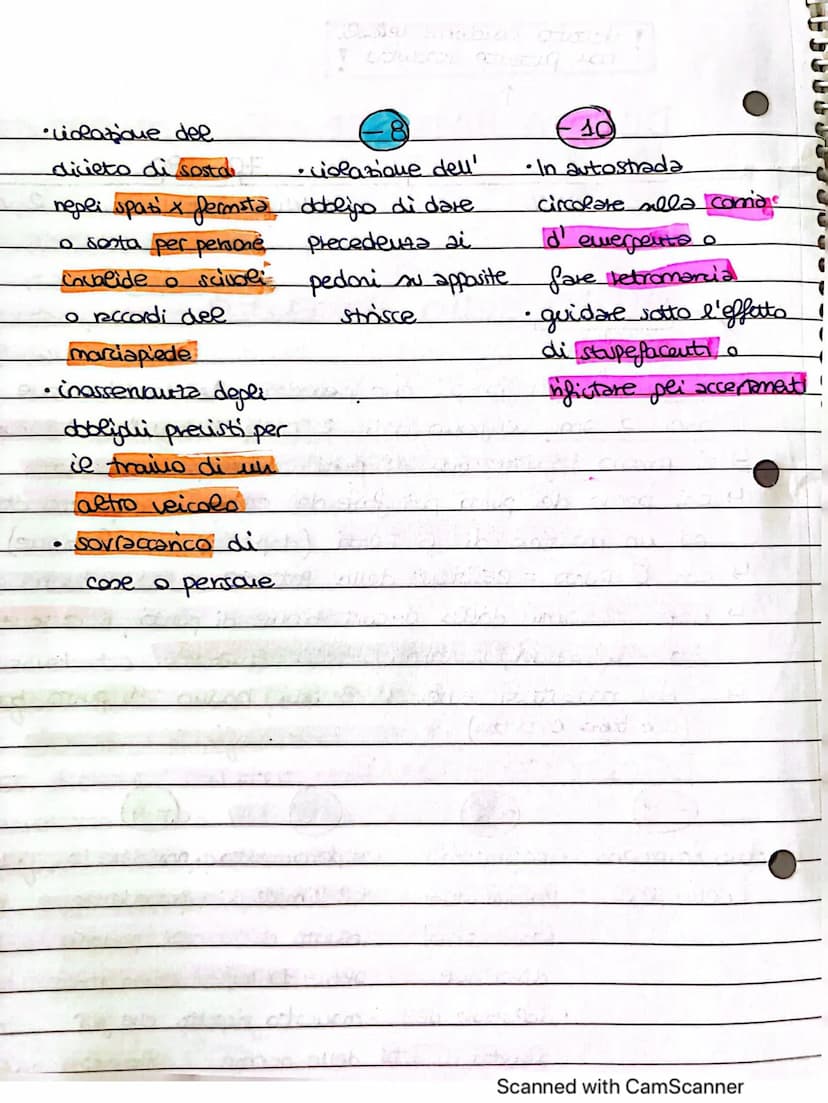 • violazione del
divieto di sosta
negli spazi x fermata
o sosta per persone
invalide o scivoli
o raccordi del
marciapiede
• inosservanza degli
obblighi previsti per
il traino di un
altro veicolo
• sovraccarico di
cose o persone
-8
• violazione dell'
obbligo di dare
precedenza ai
pedoni su apposite
strisce
-10
• In autostrada
circolare sulla corsia
d'emergenza o
fare retromarcia
• guidare sotto l'effetto
di stupefacenti o
rifiutare gli accertamenti
Scanned with CamScanner